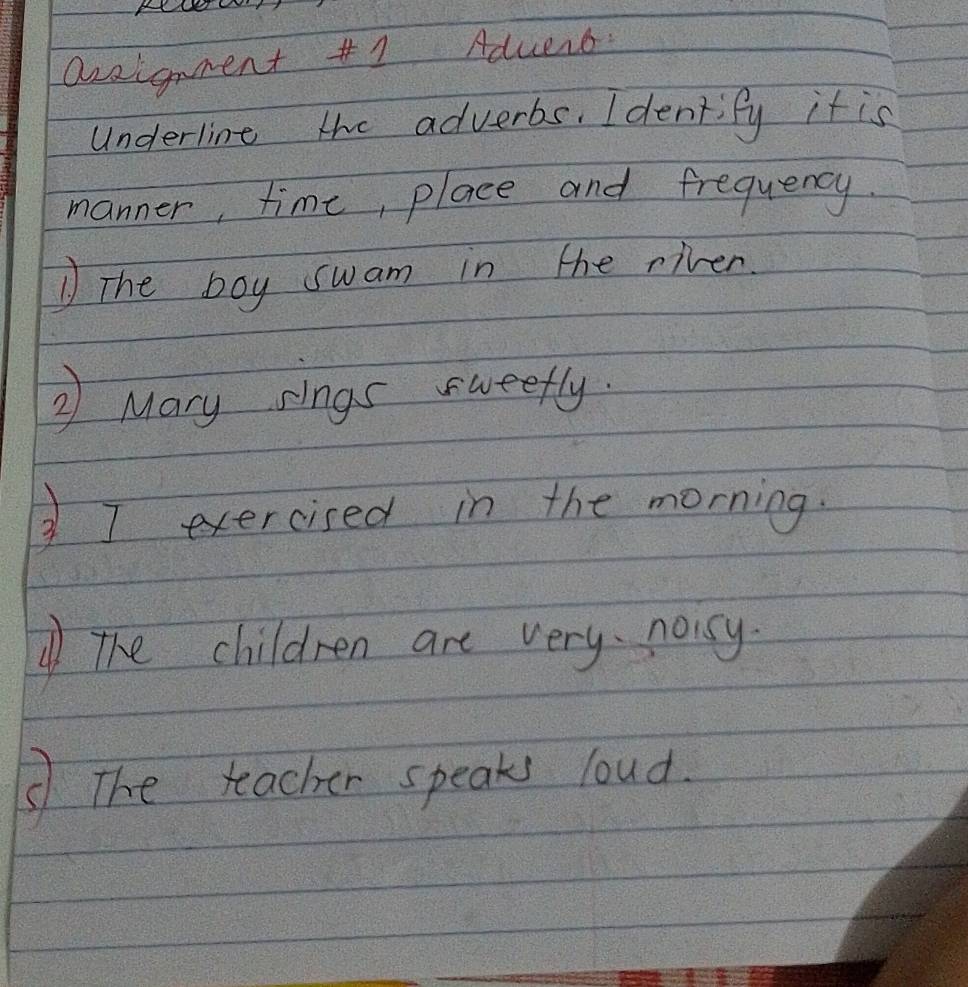 Assignment #1 Adverb:
Underline the adverbs. Identify it is
manner, time, place and frequency.
1) The boy swam in the river.
2) Mary sings sweetly.
3) I exercised in the morning.
4) The children are very noisy.
5) The teacher speaks loud.